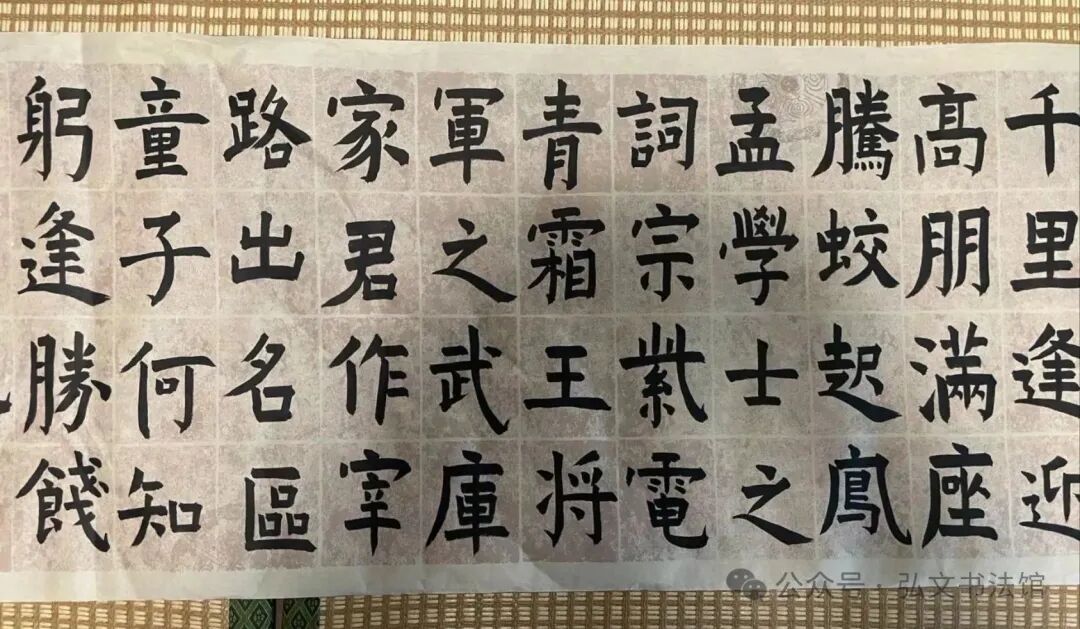 千里逢迎
髙朋滿座
騰蛟起鳯
孟學士之
詞宗紫電
青霜王将
軍之武庫
家君作宰
路出名區
童子何知
躬逢勝餞
公众号 · 弘文书法馆